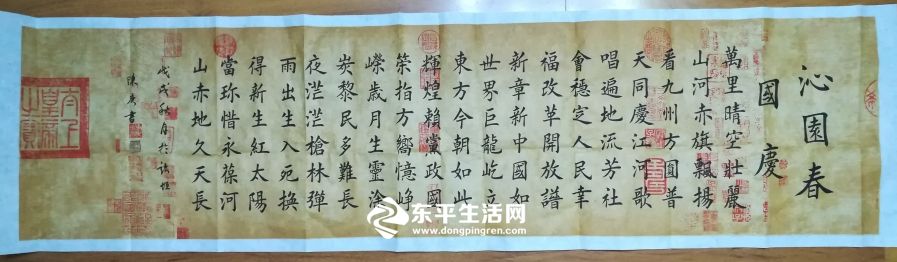 沁園春
國慶
萬里晴空壯麗
山河赤旗飄揚
看九州方圓普
天同慶江河歌
唱遍地流芳社
會穩定人民幸
福改革開放譜
新章新中國如
世界巨龍屹立
東方今朝如此
輝煌賴黨政國
榮指方嚮憶崢
嶸歲月生靈涂
炭黎民多難長
夜茫茫槍林彈
雨出生入死换
得新生紅太陽
當珎惜永葆河
山赤地久天長
戊戌秋月於
陳
书
东平生活网
www.dongpingren.com